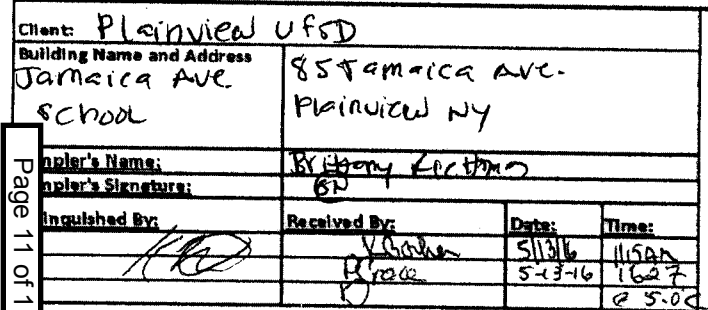 Client: Plainview UFSD
Building Name and Address
Jamaica Ave.
School
85 Jamaica Ave.
Plainview NY
mpler's Name: Brittany
mpler's Signature: BN
inquished By: Received By: Date: Time:
5/13/16 1115AM
5-13-16 1627
@ 5.0C
Page 11 of 1